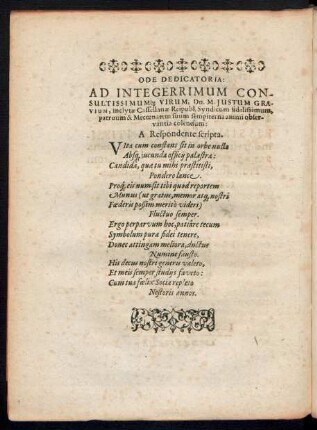 ODE DEDICATORIA:
AD INTEGERRIMUM CON-
SULTISSIMUMq; VIRUM, Dn. M. JUSTUM GRÆ-
VIUM, inclytæ Cassellanæ Reipubl. Syndicum fidelissimum,
patruum & Mecœnatem suum sempiterna animi obser-
vantia colendum:
A Respondente scripta.
VIta cum constans sit in orbe nulla
Absq; jucunda officij palæstra:
Candida, quæ tu mihi præstitisti,
Pondero lance.
Proq; eis num sit tibi quod reportem
Munus (ut gratus, memor atq; nostri
Fœderis possim meritò videri)
Fluctuo semper.
Ergo perparvum hoc, patiare tecum
Symbolum pura fidei tenere,
Donec attingam meliora, ductus
Numine fausto.
His decus nostri generis valeto,
Et meis semper studijs faveto:
Cum tua fœlix Socia repleto
Nestoris annos.